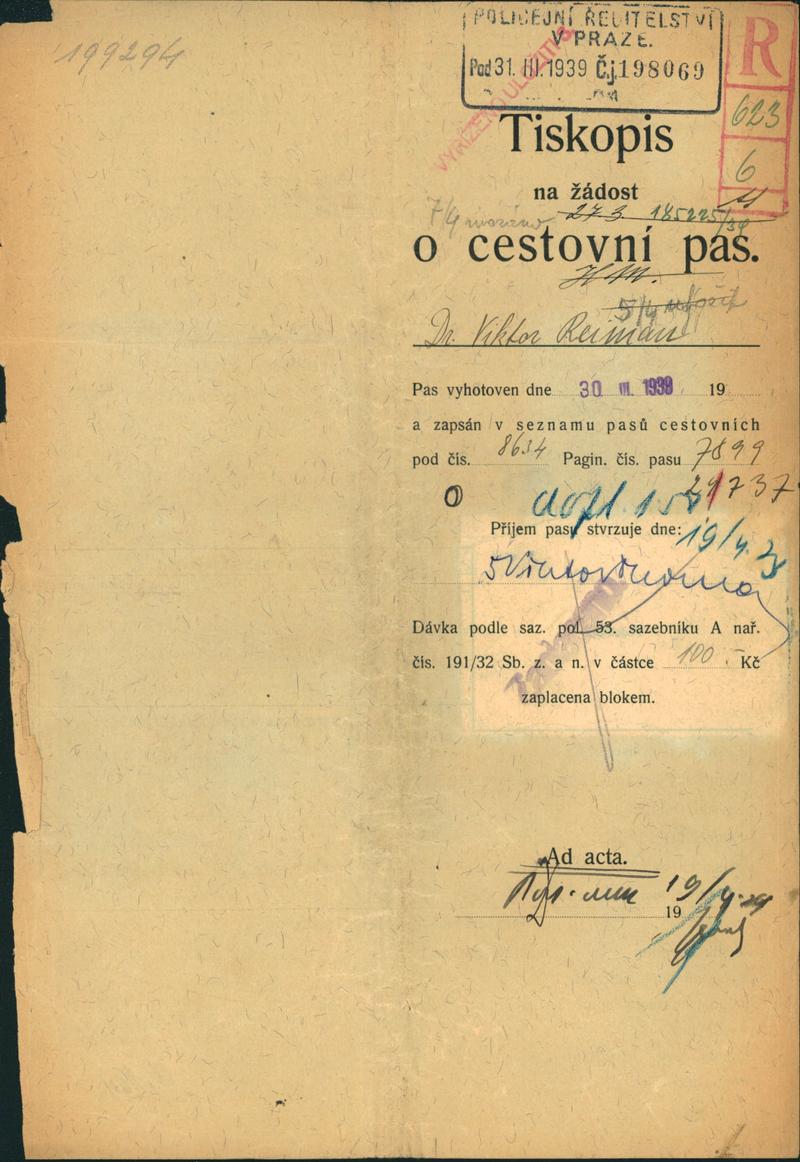 199294
POLICEJNÍ ŘEDITELSTVÍ
V PRAZE.
Pod 31. III. 1939 Č.j. 198069
VYŘÍZENO ULOŽITI
R
623
6
Tiskopis
na žádost
7/4 27 3 185225/39
o cestovní pas.
5/4
Dr. Viktor Reiman
Pas vyhotoven dne 30 III. 1939 19
a zapsán v seznamu pasů cestovních
pod čís. 8634 Pagin. čís. pasu 7899
21737
Příjem pasu stvrzuje dne: 19/4 39
Dávka podle saz. pol. 53. sazebníku A nař.
čís. 191/32 Sb. z. a n. v částce 100 Kč
zaplacena blokem.
Ad acta.
19/4 39
19